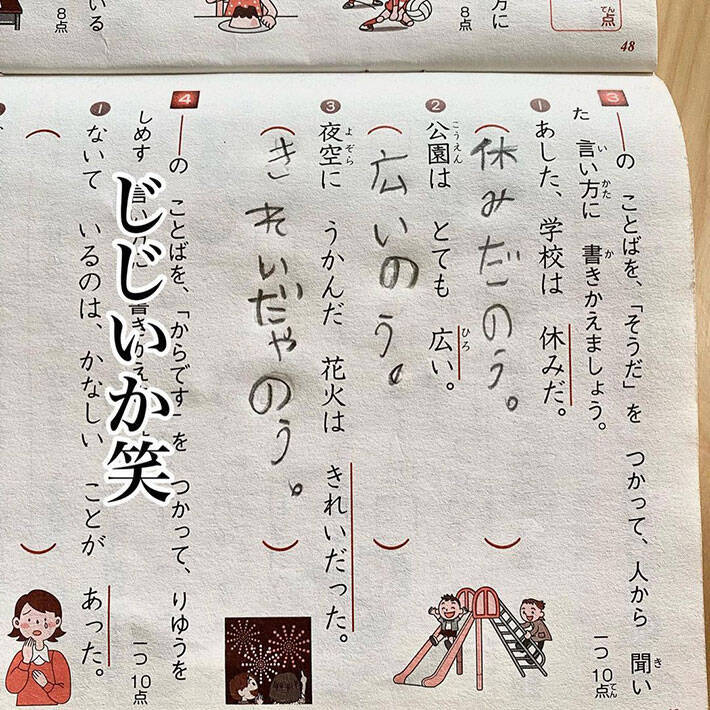 いる
8点
方に
8点
てん
点
48
3 ──の ことばを、「そうだ」を つかって、人から 聞い
た 言い方に 書きかえましょう。
一つ10点
❶ あした、学校は 休みだ。
(休みだのう。)
❷ 公園は とても 広い。
(広いのう。)
❸ 夜空に うかんだ 花火は きれいだった。
(きれいだゃのう。)
4 ──の ことばを、「からです」を つかって、りゆうを
しめす 言い方に 書きかえ
一つ10点
❶ ないて いるのは、かなしい ことが あった。
じじいか笑